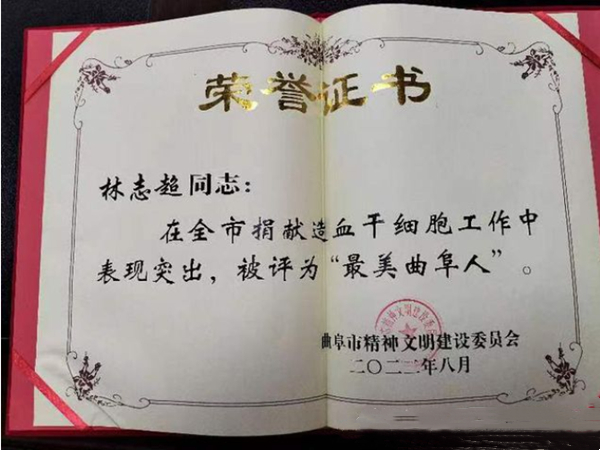 荣誉证书
林志超同志：
在全市捐献造血干细胞工作中
表现突出，被评为“最美曲阜人”。
曲阜市精神文明建设委员会
二〇二二年八月